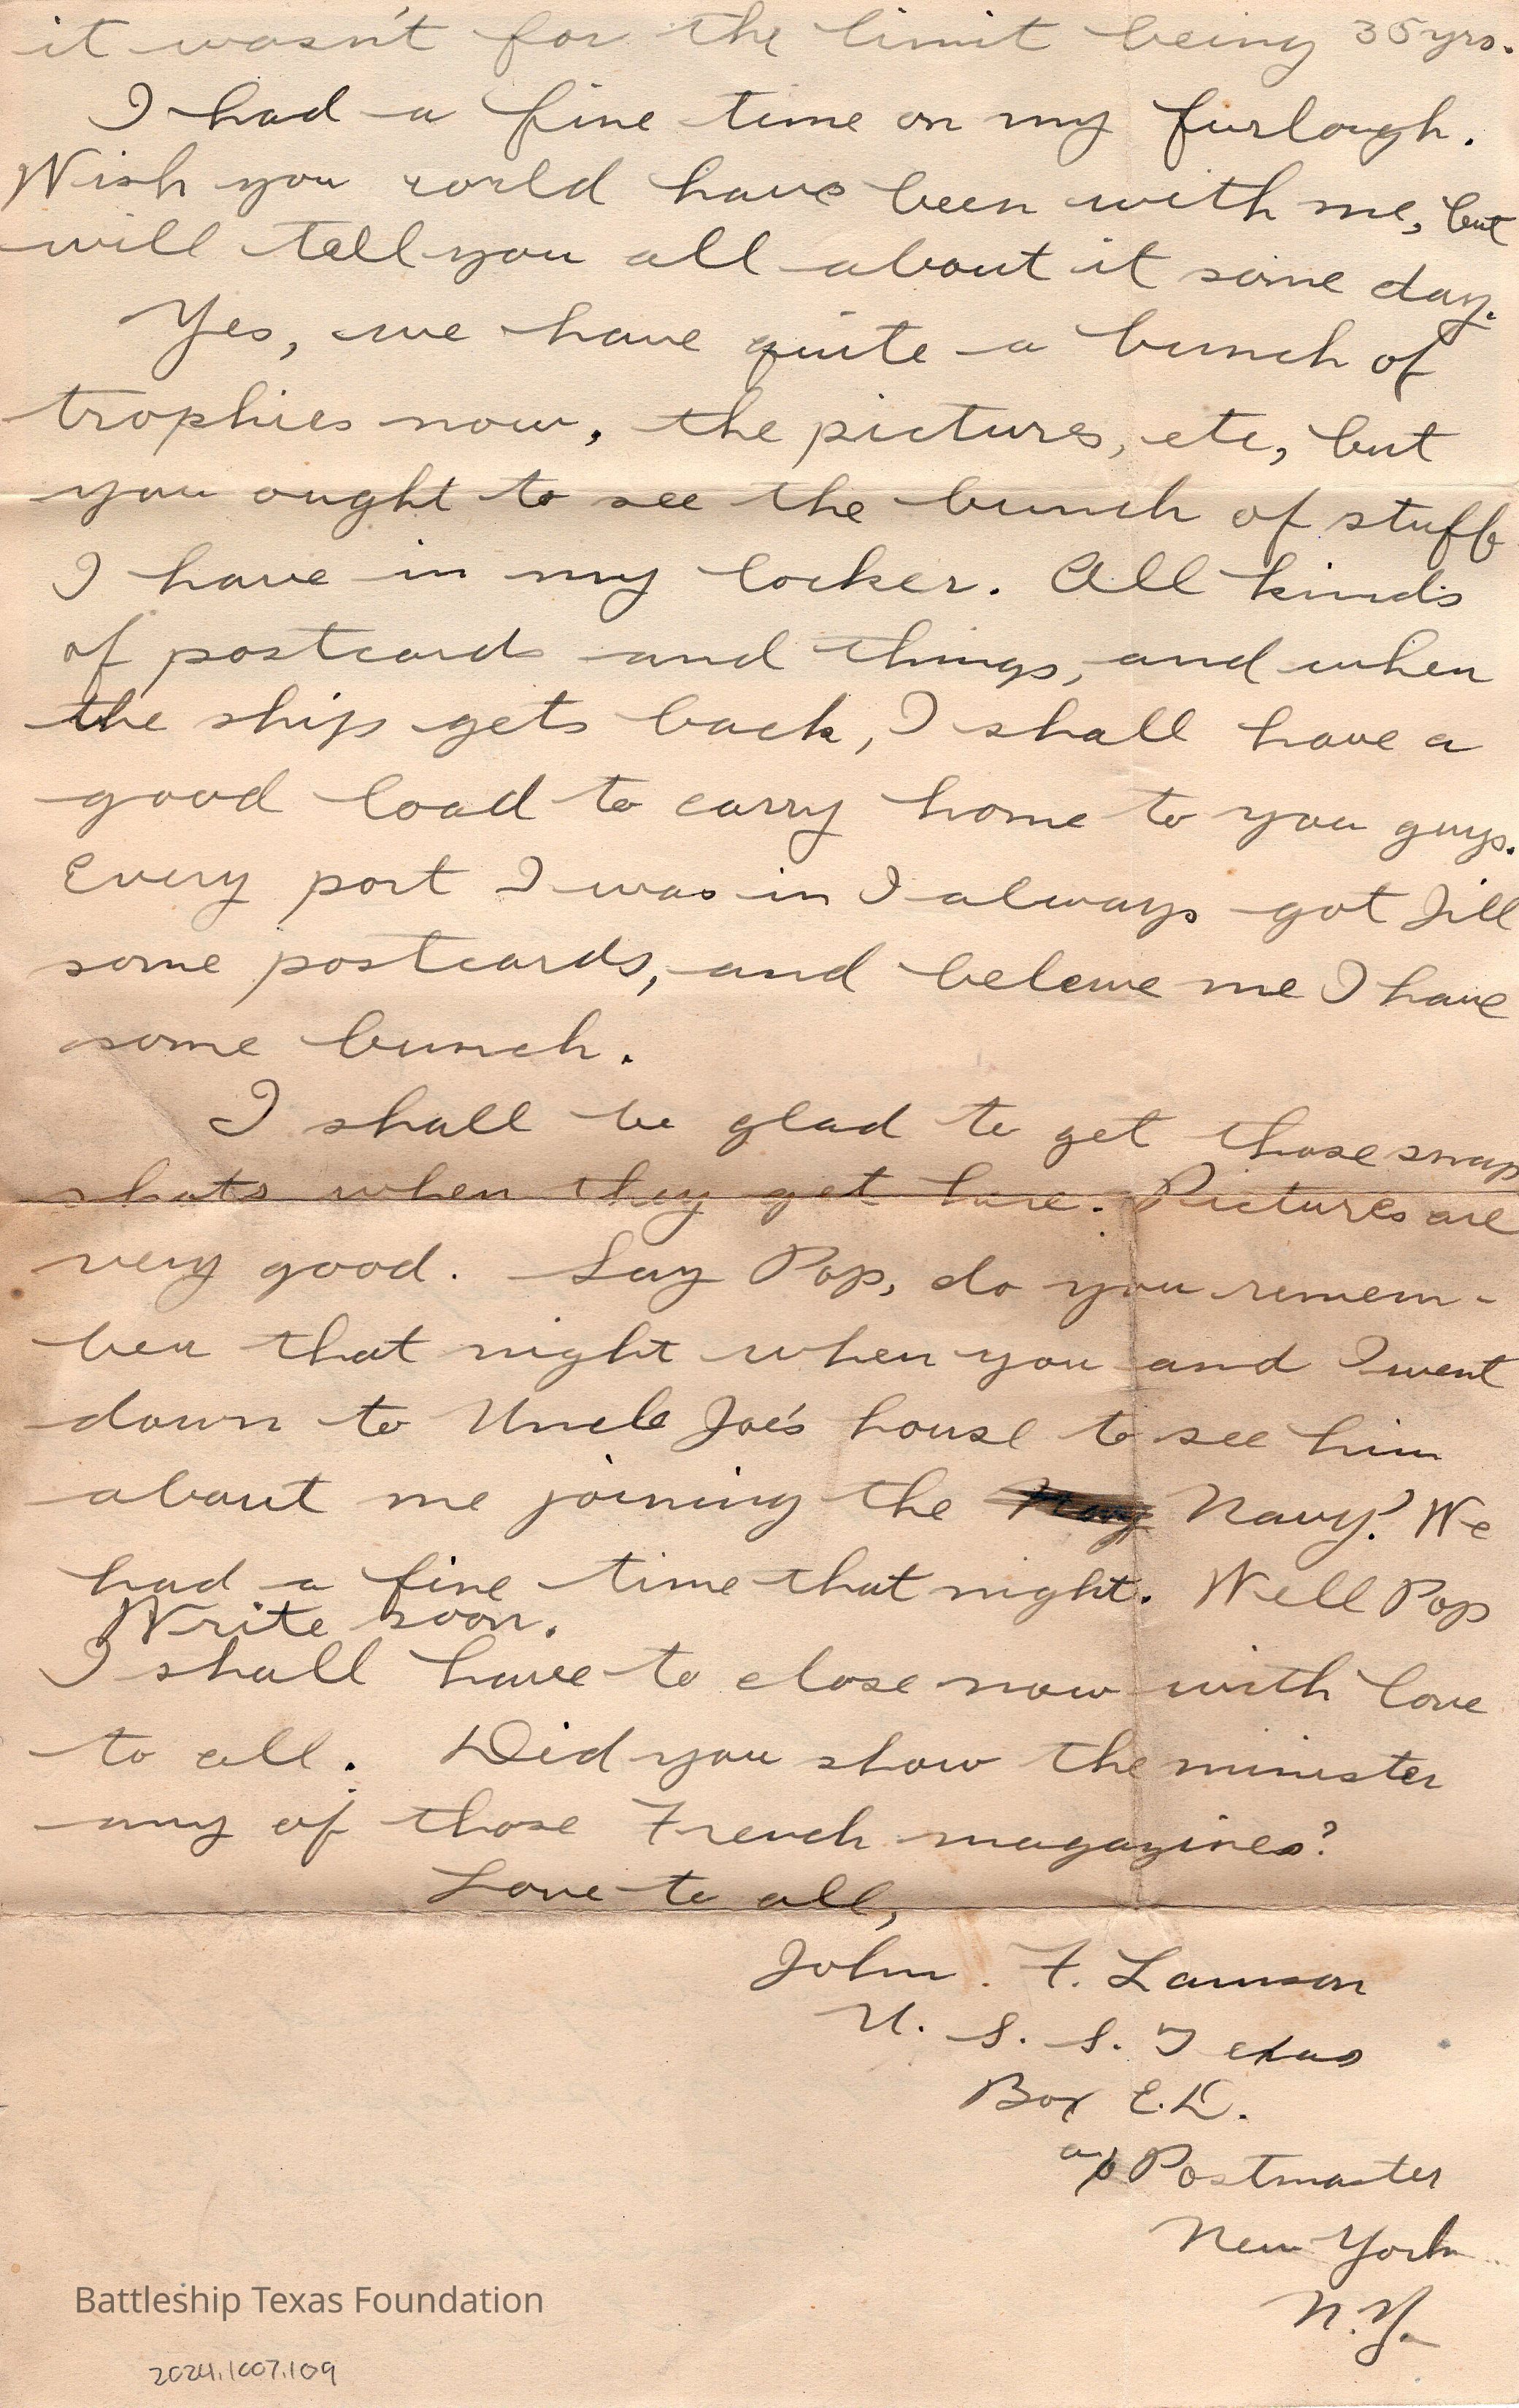 it wasn't for the limit being 35 yrs.
I had a fine time on my furlough.
Wish you world have been with me, but
will tell you all about it some day.
Yes, we have quite a bunch of
trophies now, the pictures, etc, but
you ought to see the bunch of stuff
I have in my locker. All kinds
of postcards and things, and when
the ship gets back, I shall have a
good load to carry home to you guys.
Every port I was in I always got Jill
some postcards, and beleive me I have
some bunch.
I shall be glad to get those snap
shots when they get here. Pictures are
very good. Say Pop, do you remem-
ber that night when you and I went
down to Uncle Joe's house to see him
about me joining the Navy? We
had a fine time that night. Well Pop
Write soon.
I shall have to close now with love
to all. Did you show the minister
any of those French magazines?
Love to all,
John. F. Lawson
U. S. S. Texas
Box E.D.
c/o Postmaster
New York
N.Y.
Battleship Texas Foundation
2024.1007.109